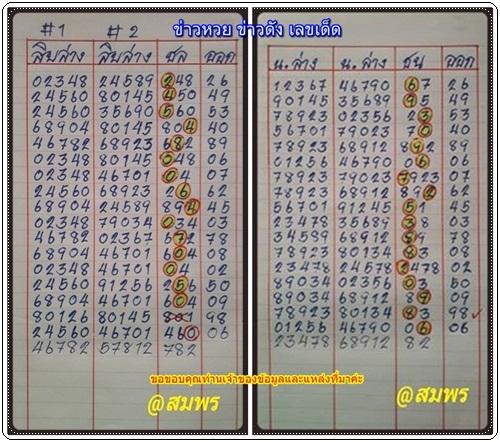 ข่าวหวย ข่าวดัง เลขเด็ด
#1 #2
สิบล่าง สิบล่าง ชล ออก
02348 24589 248 26
24560 80145 450 49
24560 35690 560 53
68904 80145 804 40
46782 68923 682 89
02348 80145 048 06
02348 46701 04 07
24560 68923 6 62
24560 68923 894 45
02348 79034 034 03
46782 02367 672 78
68904 46701 604 08
02348 46701 04 02
24560 91256 256 50
68904 46701 604 09
80126 80145 801 98
24560 46701 460 06
46782 57812 782
น.ล่าง น.ล่าง ชน ออก
12367 46790 67 26
90145 35689 95 49
78923 02356 23 53
56701 79023 70 40
78923 68912 892 89
01256 46790 06 06
78923 79023 7923 07
78923 68912 892 62
56701 91245 51 45
23478 35689 38 03
34589 68912 59 78
78923 80134 83 08
23478 24578 2478 02
89034 02356 03 50
89034 68912 89 09
78923 80134 83 98
01256 46790 06 06
23478 68912 82
ขอขอบคุณท่านเจ้าของข้อมูลและแหล่งที่มาค่ะ
@สมพร
@สมพร